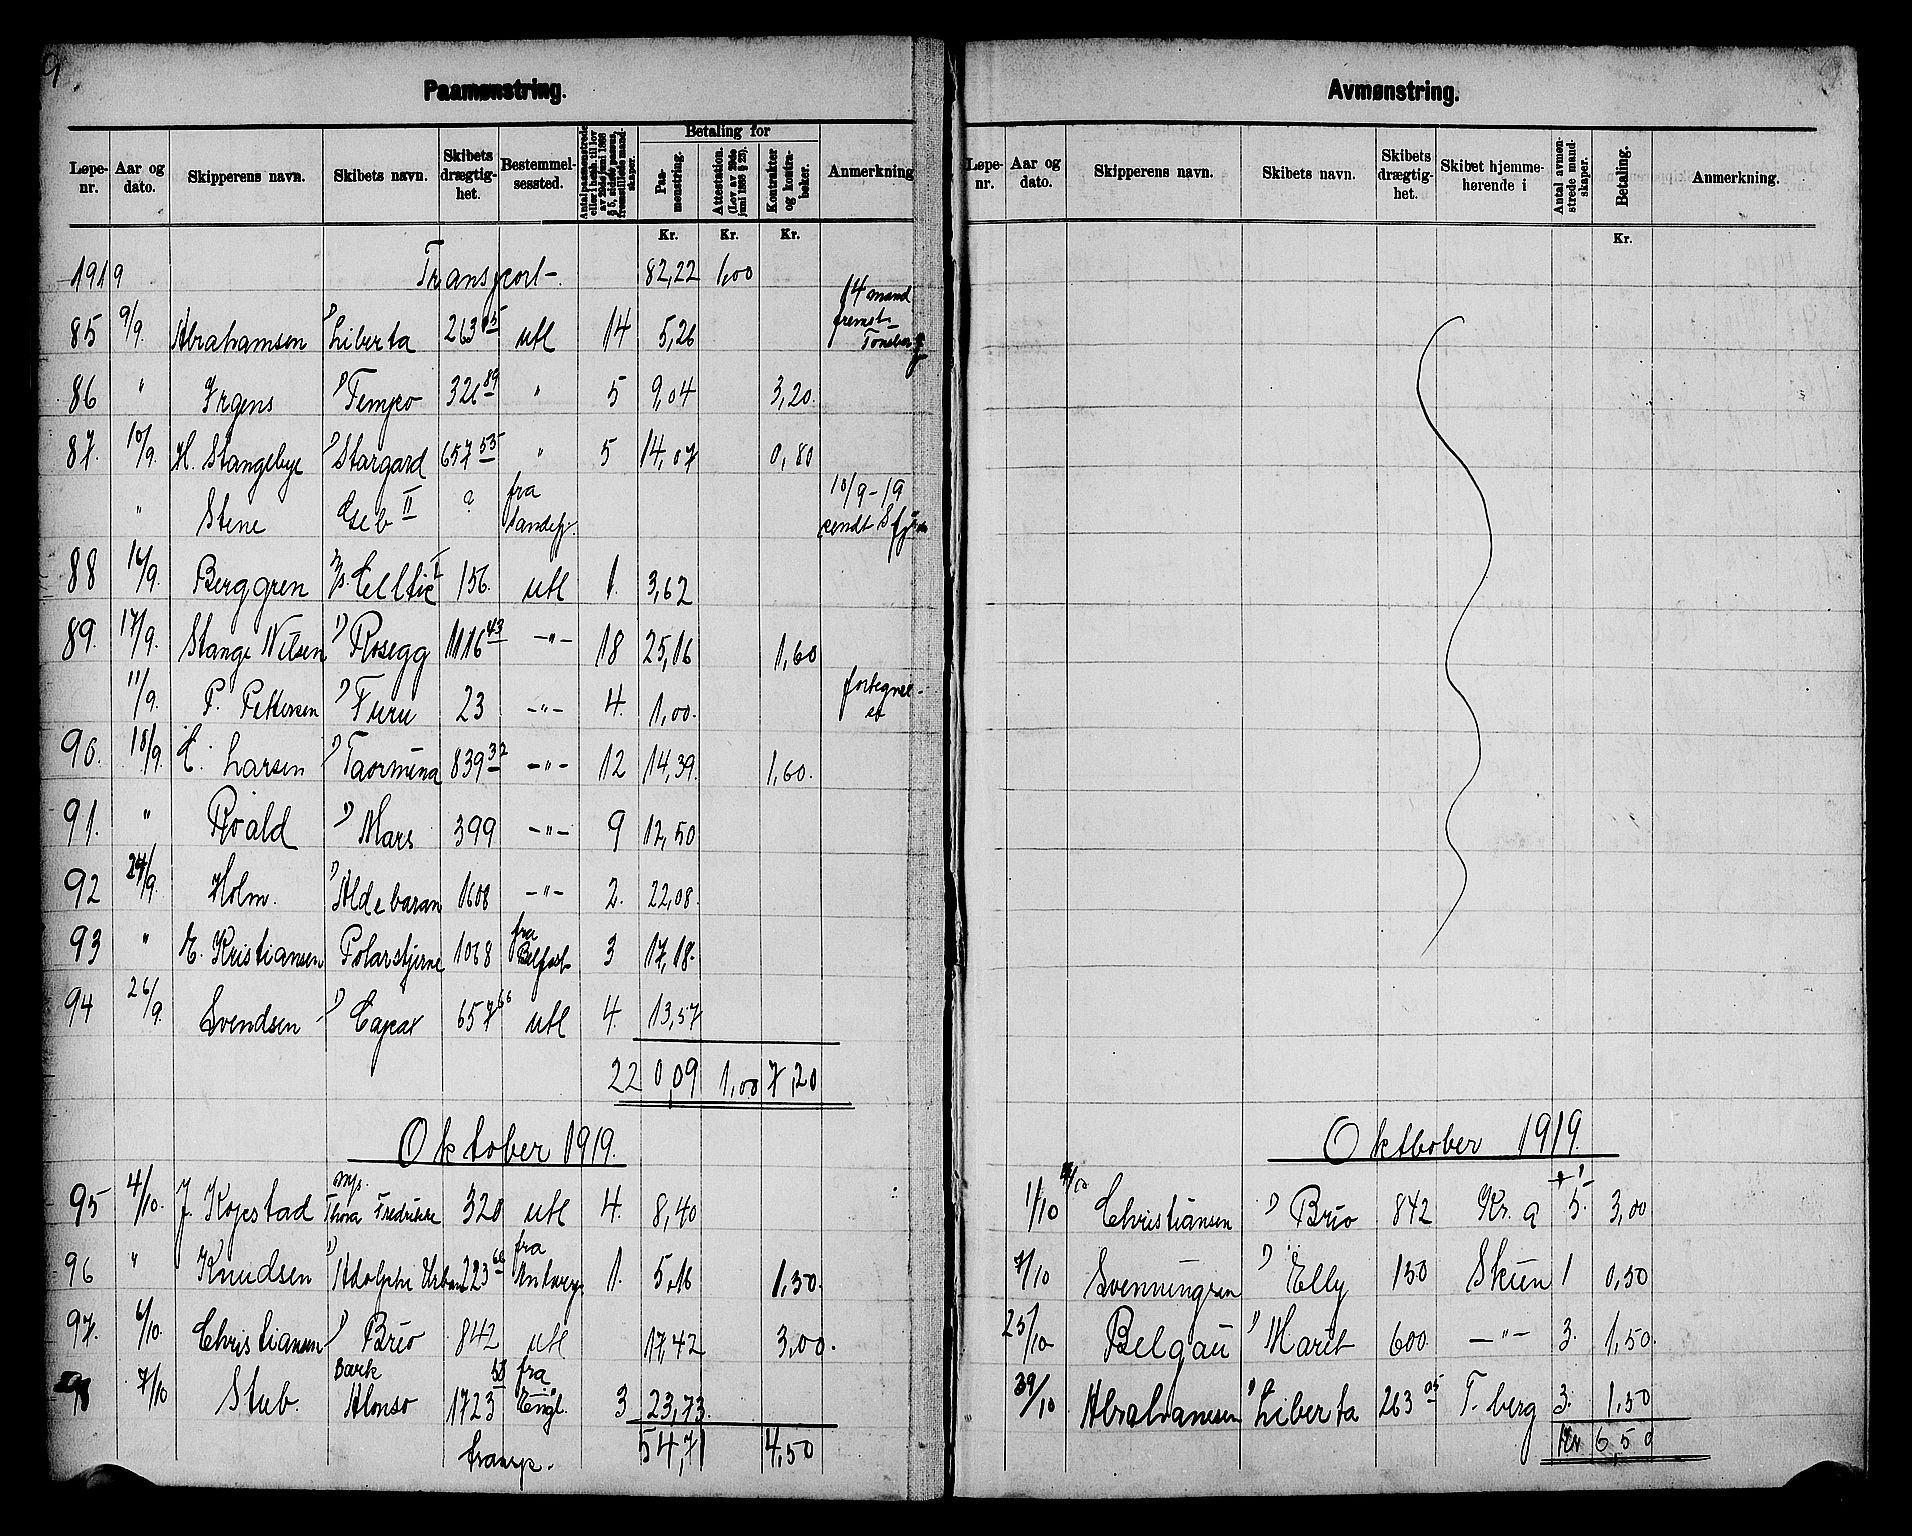 9
Paamønstring.
Løpe-nr. Aar og dato. Skipperens navn. Skibets navn. Skibets drægtig-het. Bestemmel-sessted. Betaling for Paa-mønstring. Attestation. (Lov av 29de juni 1888 § 23). Kontrakter og kontra-bøker. Anmerkning
Kr. Kr. Kr.
1919 Transport 82,22 1,00
85 9/9. Abrahamsen " Liberta 263 05 utl 14 5,26 14 mand fremst. Tønsberg
86 " Irgens " Tempo 326 89 " 5 9,04 3,20
87. 10/9. H. Stangebye " Stargard 657 55 " 5 14,07 0,80
" Stene II ? fra Sandefj. 10/9-19 sendt S.fjor
88 16/9. Berggren M/s. Celtic I 156. utl 1. 3,62
89. 17/9. Stange Nilsen " Rosegg 1116 43 -"- 18 25,16 1,60
11/9. P. Pettersen " Furu 23 -"- 4. 1,00.
90. 18/9. C. Larsen " Taormina 839 32 -"- 12 14,39. 1,60.
91. " Roald " Mars 399 -"- 9 12,50
92 24/9. Holm. " Aldebaran 1608 -"- 2. 22,08.
93 " E. Kristiansen Polarstjerne 1068 fra Belfast 3 17,18.
94 26/9. Svendsen " Capax 657 66 utl 4. 13,57
220,09 1,00 7,20
Oktober 1919.
95 4/10. J. Kopstad m/s. Thora Fredrikke 320 utl 4. 8,40
96 " Knudsen " Adolph Urban 223 66 fra Antwerp. 1. 5,16 1,50.
97. 6/10. Christiansen " Brio 842 utl 17,42 3,00.
98 7/10 Stub. Bark Alonso 1723 58 fra Engl. 3 23,73.
transp. 54,71 4,50
Avmønstring.
Løpe-nr. Aar og dato. Skipperens navn. Skibets navn. Skibets drægtig-het. Skibet hjemme-hørende i Antal avmøn-strede mand-skaper. Betaling. Anmerkning.
Kr.
Oktbober 1919.
1/10 Christiansen " Brio 842 Kr. a 5. 3,00
7/10 Svenningsen " Elly 150 Skien 1 0,50
25/10 Belgau " Marit 600 -"- 3. 1,50.
/10 Abrahamsen " Liberta 263 05 T. berg 3. 1,50
Kr 6,50